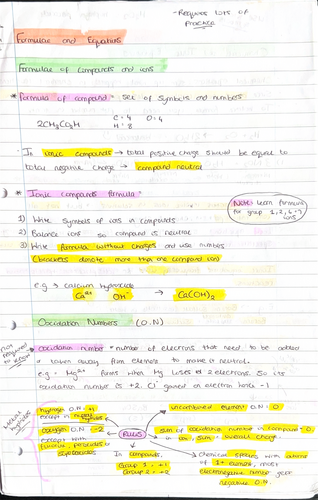 - Requires lots of
Practice
Formulae and Equations
Formulae of compounds and ions
* formula of compound = set of symbols and numbers
2CH3CO2H
C = 4 O = 4
H = 8
In ionic compounds → total positive charge should be equal to
total negative charge → compound neutral
* Ionic compounds formula =
Note: learn formulas
for group 1, 2, 6 + 7
ions
1) Write symbols of ions in compounds
2) Balance ions so compound is neutral
3) Write formula without charges and use numbers
(brackets denote more than one compound ion)
e.g → calcium hydroxide
Ca2+ OH- → Ca(OH)2
Oxidation Numbers (O.N)
oxidation number = number of electrons that need to be added
taken away from element to make it neutral.
e.g. Mg2+ forms when Mg loses 2 electrons. So its
oxidation number is +2. Cl- gained an electron hence -1
hydrogen O.N = +1
except in metal hydrides
oxygen O.N = -2
except with
fluorine, peroxides or
superoxides
Metal
hydrides
RULES
In compounds,
Group 1, +1
Group 2, +2
uncombined element O.N = 0
sum of oxidation number in compound = 0
in ion, sum = overall charge
Chemical species with atoms
of 1+ element, most
electronegative number gets
negative O.N